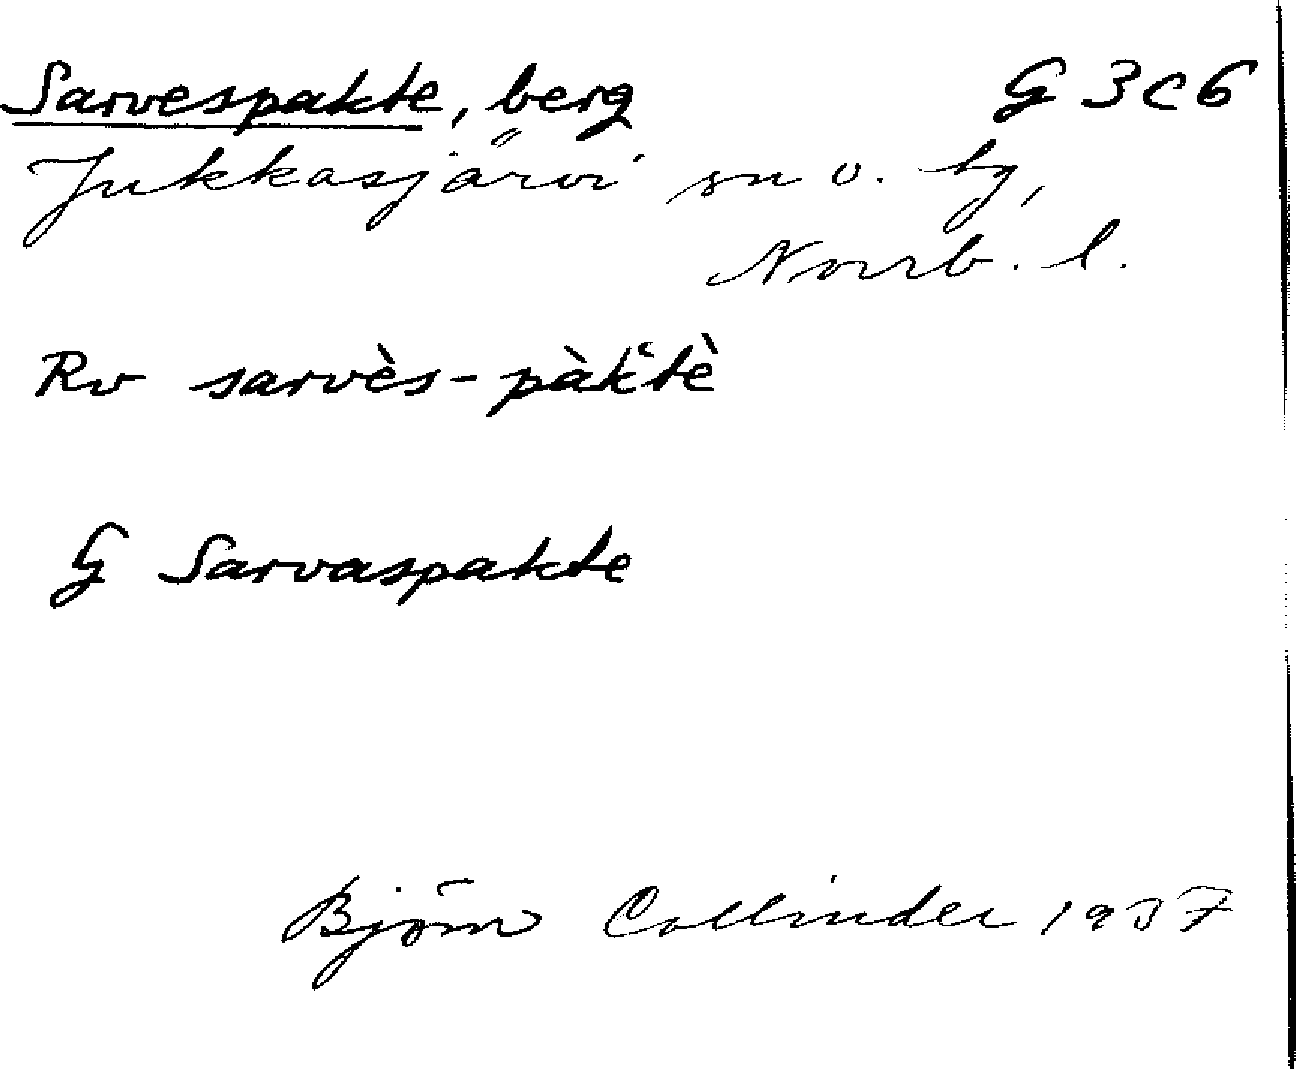 Sarvespakte, berg G 3 c 6
Jukkasjärvi sn o. by,
Norrb. l.
Rv sarvès-pàk̀‘tè
G Sarvaspakte
Björn Collinder 1937